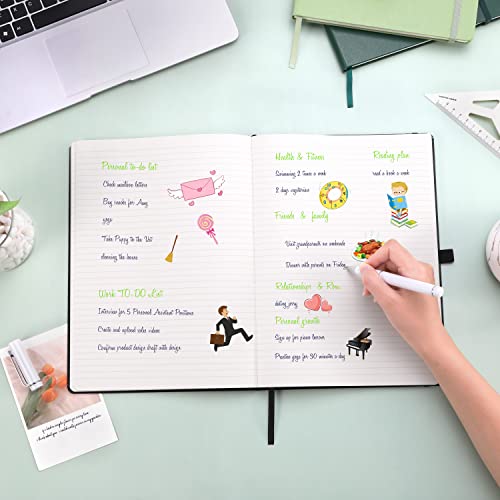 Personal to-do list
Check mailbox letters
Buy snacks for Amy
yoga
Take Puppy to the Vet
cleaning the house
Work TO-DO List
Interview for 5 Personal Assistant Positions
Create and upload sales videos
Confirm product design draft with design
Health & Fitness
Swimming 2 times a week
2 days vegetarian
Friends & family
Visit grandparents on weekends
Dinner with parents on Friday
Relationships & Rom
dating jenny
Personal growth
Sign up for piano lesson
Practice yoga for 30 minutes a day
Reading plan
read a book a week